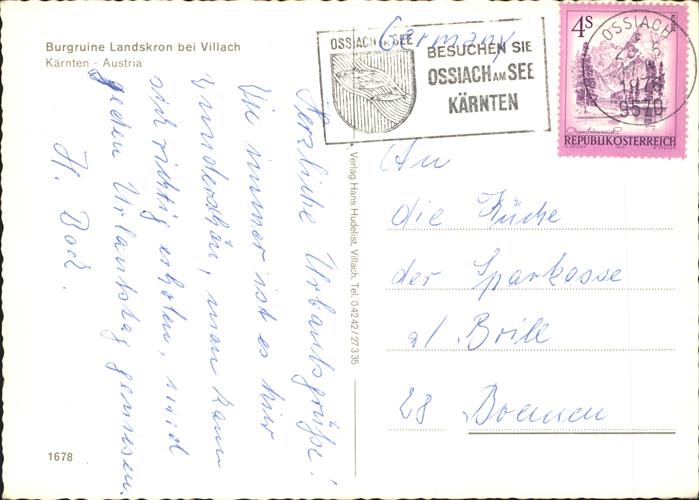 Burgruine Landskron bei Villach
Kärnten - Austria
Germany
OSSIACH AM SEE
BESUCHEN SIE
OSSIACH AM SEE
KÄRNTEN
4S
REPUBLIK ÖSTERREICH
OSSIACH
1978
9570
Herzliche Urlaubsgrüße!
Wie immer ist es hier
wunderschön, man kann
sich richtig erholen, und
jeden Urlaubstag geniessen.
H. Bock.
Verlag Hans Hudelist, Villach, Tel. 04242/27335
An
die Küche
der Sparkasse
a/ Brill
28 Bremen
1678